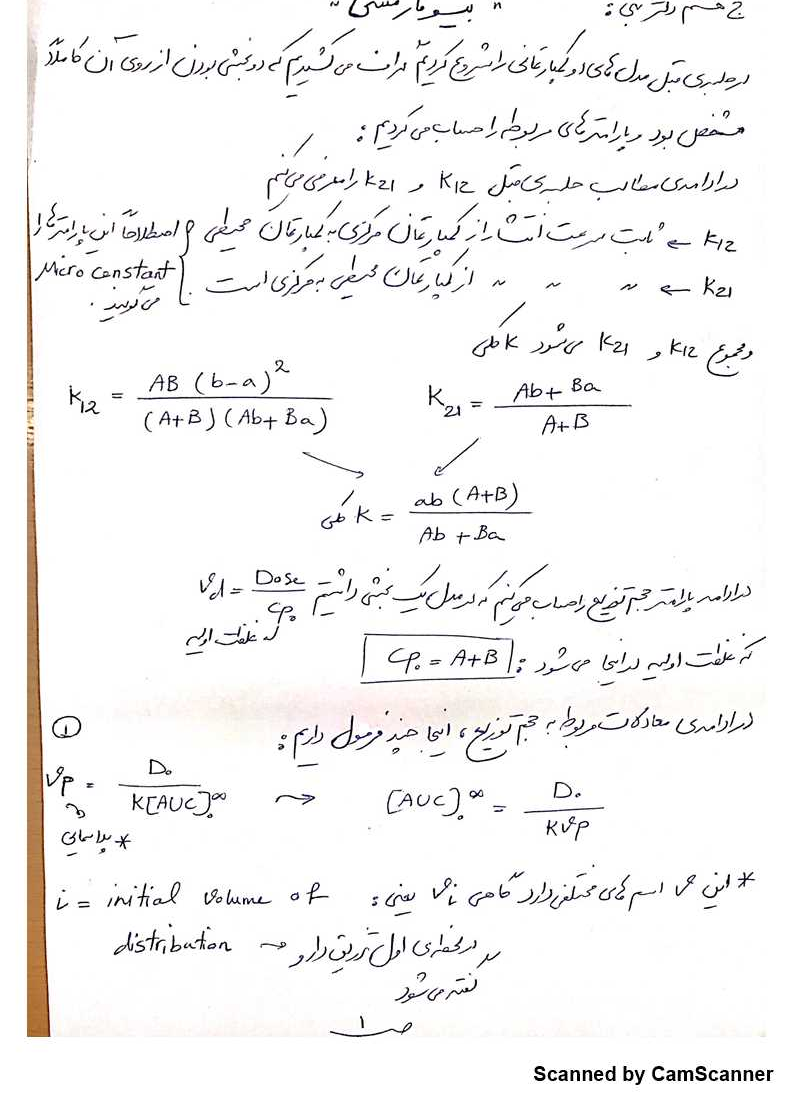 " بیوفارمسی "
در جلسه‌ی قبل مدل های دو کمپارتمانی را شروع کردیم که دو بخشی بودن از روی آن کاملاً
مشخص بود و پارامترهای مربوطه را حساب می کردیم :
در ادامه‌ی مطالب جلسه‌ی قبل K12 و K21 را معرفی می کنم
K12 ← ثابت سرعت انتشار از کمپارتمان مرکزی به کمپارتمان محیطی } اصطلاحاً این پارامترها را
K21 ← " " " از کمپارتمان محیطی به مرکزی است . } Micro constant
می گویند .
و مجموع K12 و K21 می شود K کلی
K12 = AB (b-a)² / (A+B)(Ab+Ba)    K21 = Ab+Ba / A+B
K کلی = ab (A+B) / Ab+Ba
در ادامه پارامتر حجم توزیع را حساب می کنم که در مدل یک بخشی داشتیم Vd = Dose / Cp₀
غلظت اولیه
که غلظت اولیه در اینجا می شود : Cp₀ = A+B
در ادامه‌ی معادلات مربوط به حجم توزیع ، اینجا چند فرمول داریم :
①
Vp = D₀ / K[AUC]₀∞ → [AUC]₀∞ = D₀ / KVp
* پلاسمای
* این V اسم های مختلفی دارد گاهی Vi یعنی : i = initial volume of
distribution → در لحظه‌ی اول تزریق دارو
گفته می شود
ص ۱
Scanned by CamScanner